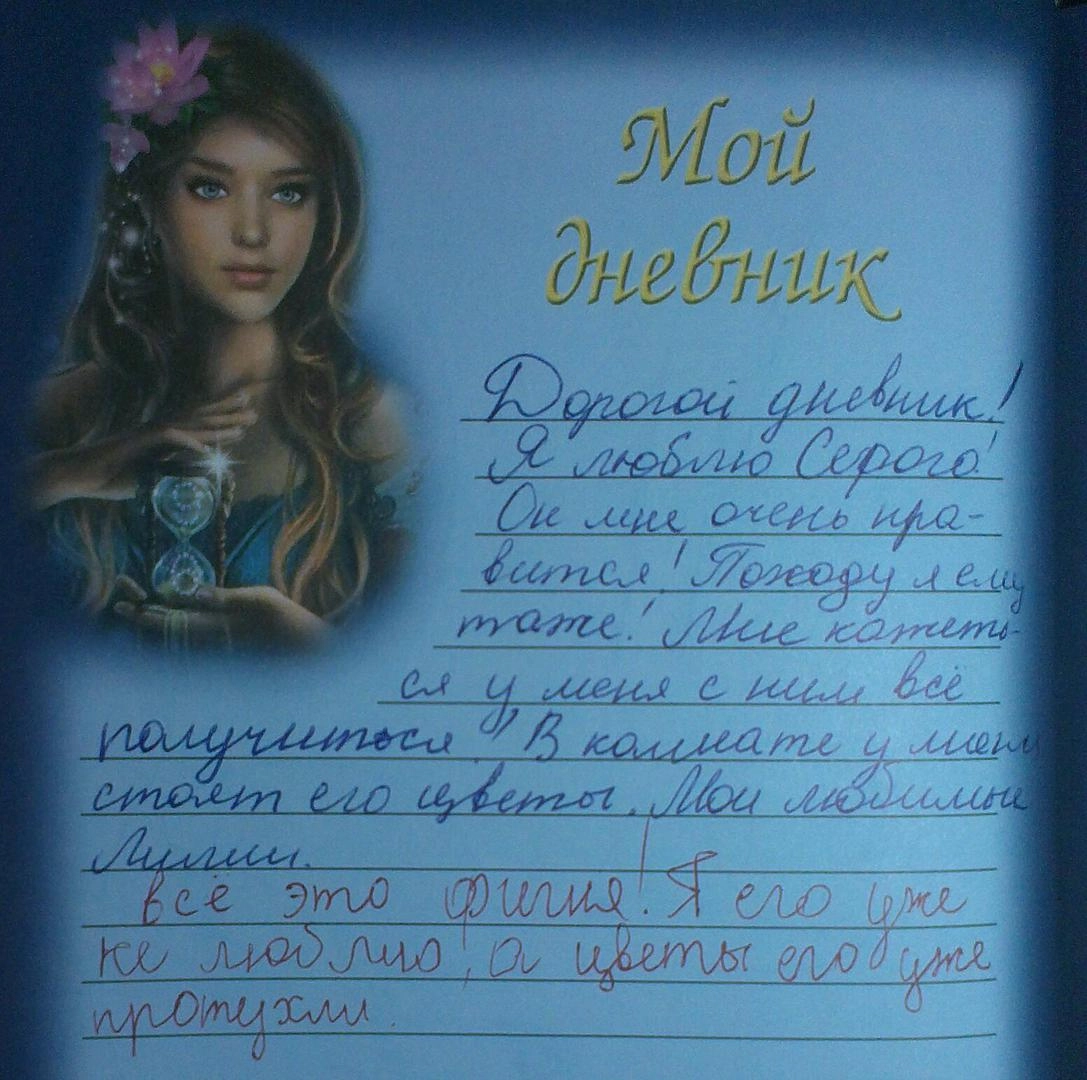 Мой
дневник
Дорогой дневник!
Я люблю Серого!
Он мне очень нра-
вится! Походу я ему
таже! Мне кажеть-
ся у меня с ним всё
получиться! В комнате у меня
стоят его цветы. Мои любимые
Лилии.
всё это фигня! Я его уже
не люблю, а цветы его уже
протухли.